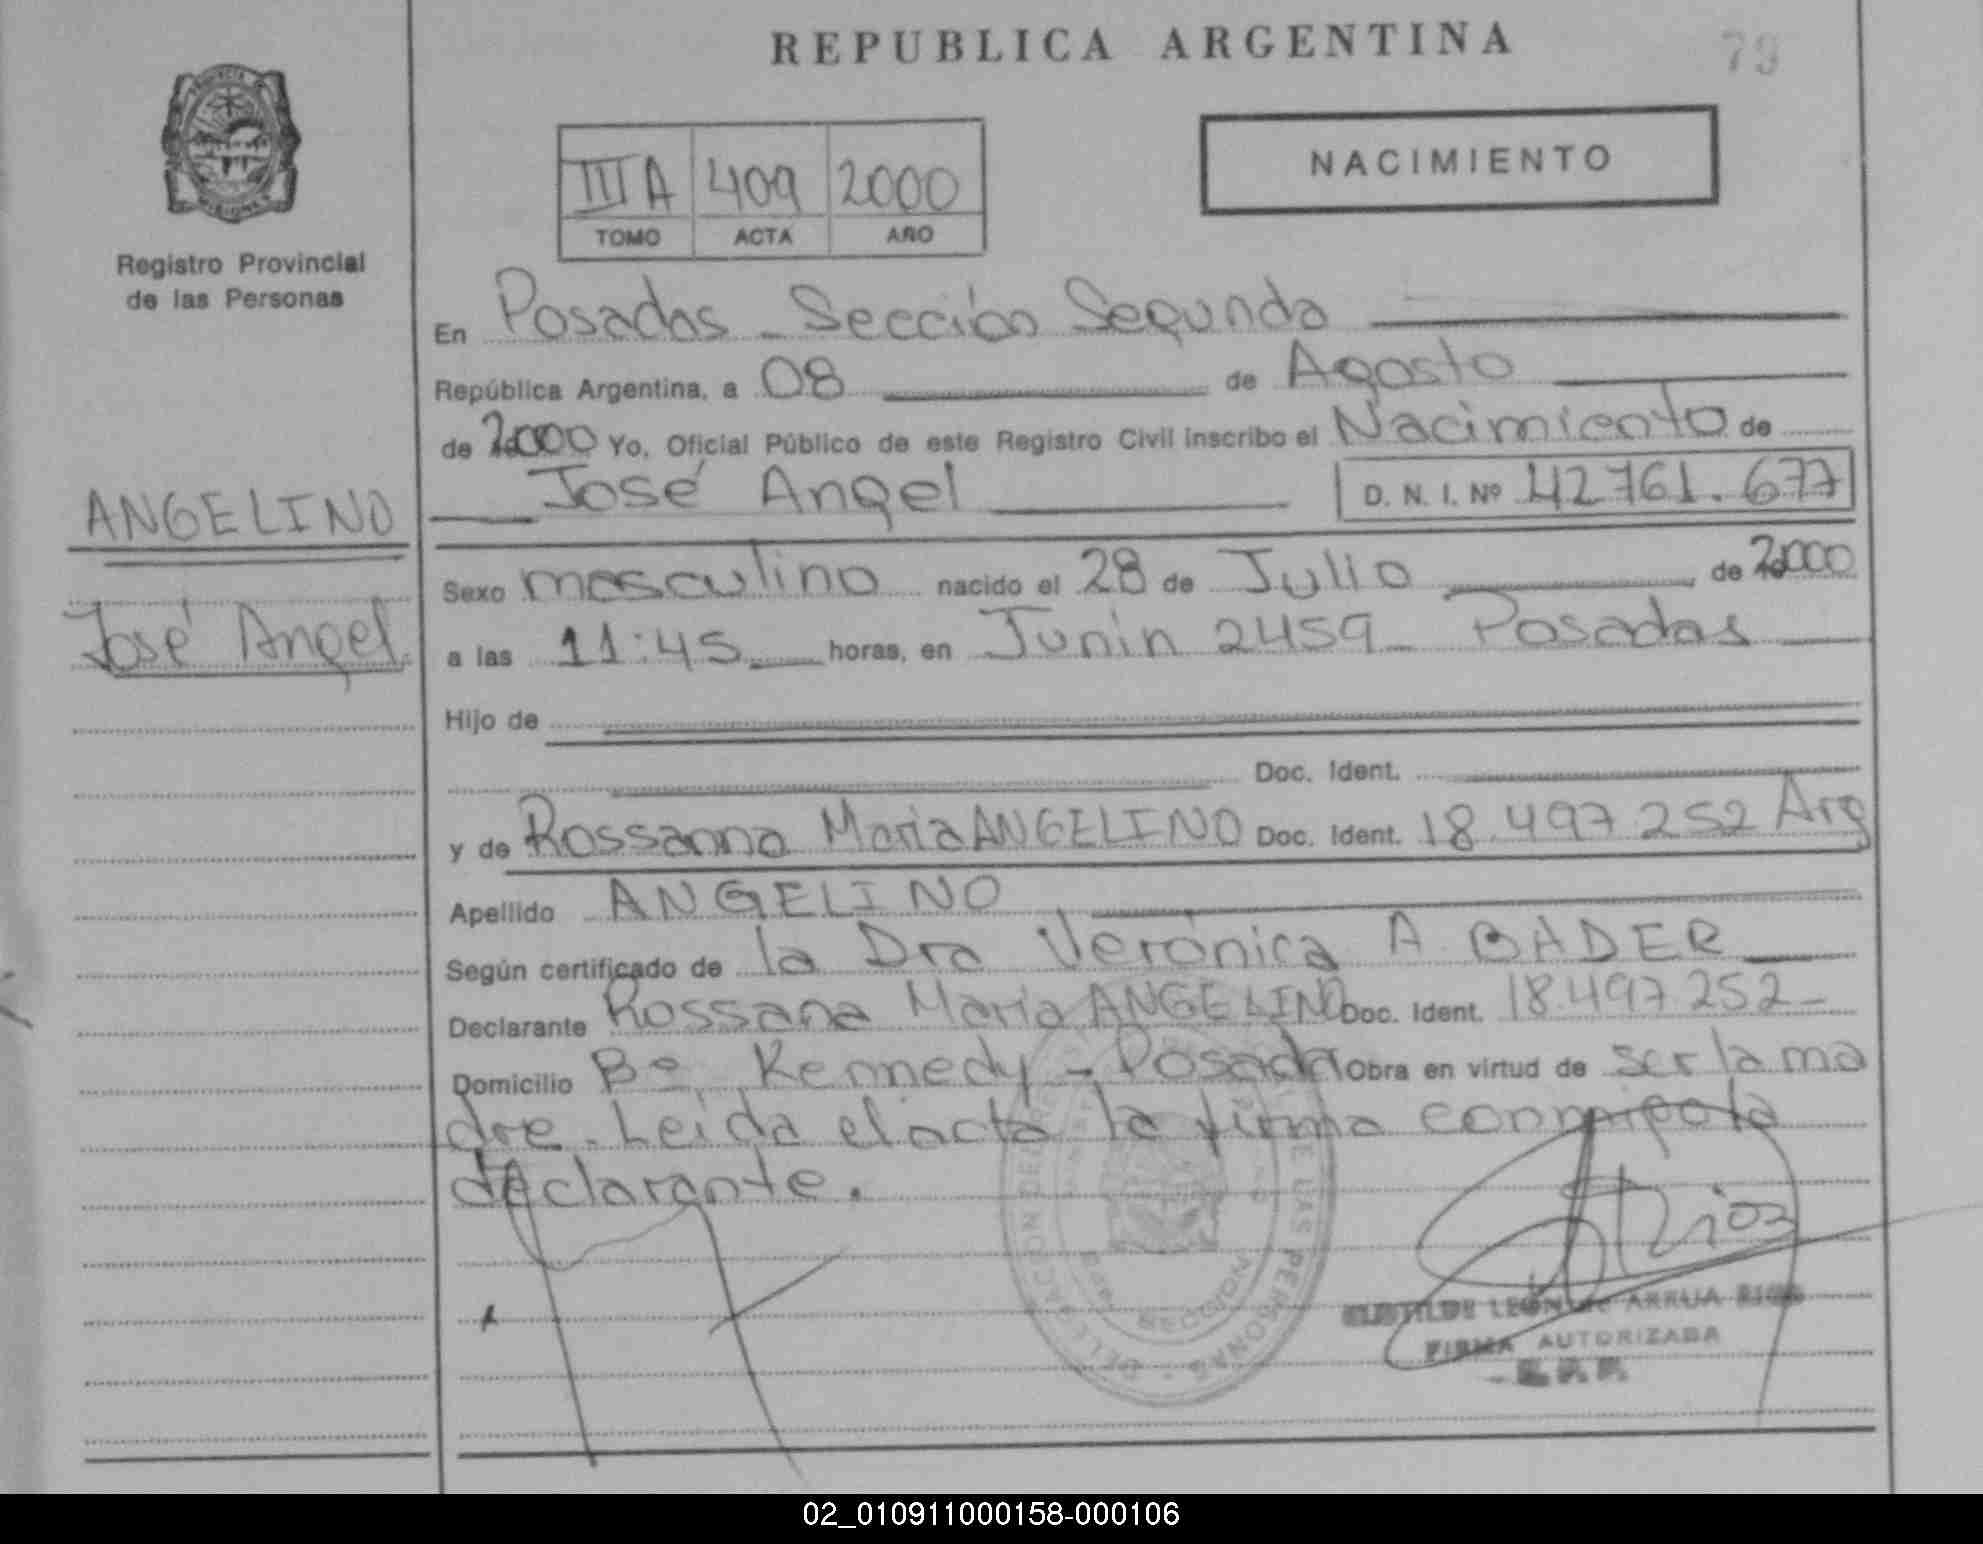 REPUBLICA ARGENTINA
79
NACIMIENTO
III A 409 2000
TOMO ACTA AÑO
Registro Provincial
de las Personas
En Posadas - Sección Segunda
República Argentina, a 08 de Agosto
de 2000 Yo, Oficial Público de este Registro Civil inscribo el Nacimiento de
José Angel D. N. I. Nº 42761.677
ANGELINO
José Angel
Sexo masculino nacido el 28 de Julio de 2000
a las 11:45 horas, en Junin 2459 - Posadas
Hijo de
Doc. Ident.
y de Rossanna Maria ANGELINO Doc. Ident. 18.497 252 Arg
Apellido ANGELINO
Según certificado de la Dra Verónica A BADER
Declarante Rossana Maria ANGELINO Doc. Ident. 18.497.252-
Domicilio Bº Kennedy - Posadas Obra en virtud de ser la ma
dre. Leida el acta la firma conmigo la
declarante.
Rios
CLOTILDE LEON de ARRUA RIOS
FIRMA AUTORIZADA
R. P. P.
02_010911000158-000106